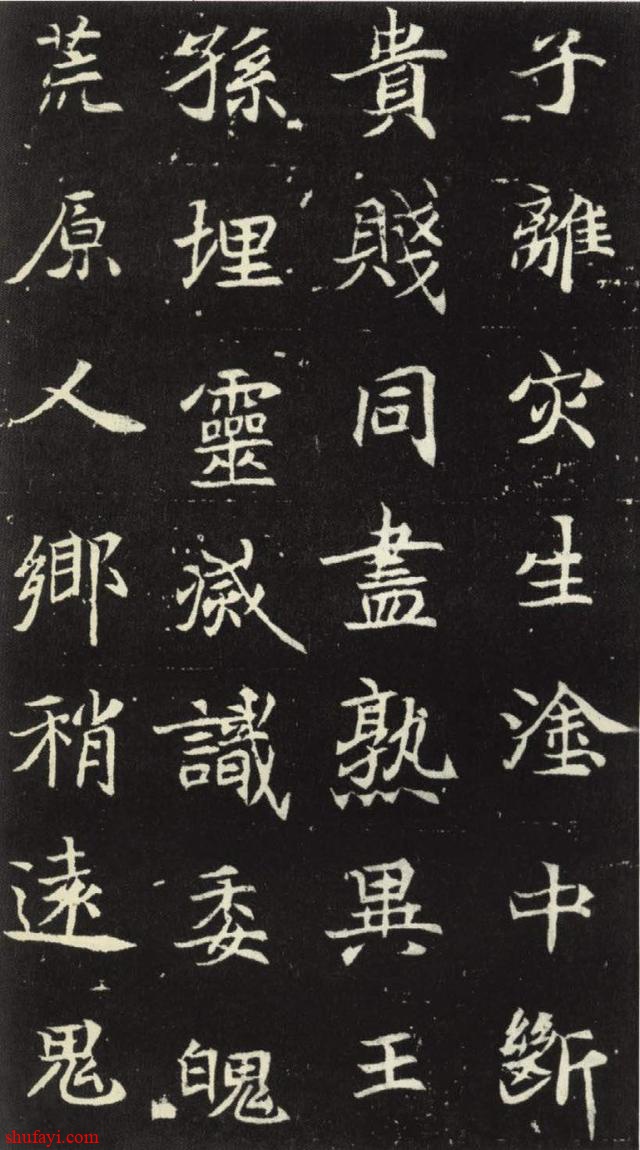 子離灾生塗中斷
貴賤同盡熟異王
孫埋靈滅識委魄
荒原人鄉稍遠鬼
shufayi.com